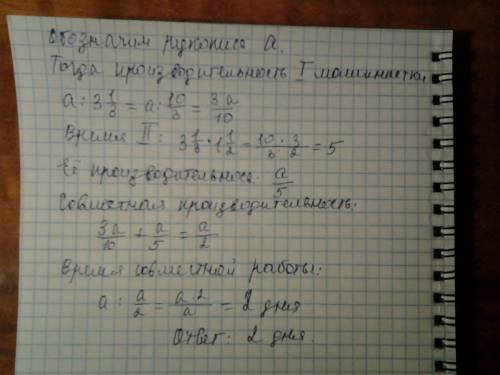 Обозначим рукопись a.
Тогда производительность I машинистки
a : 3 1/3 = a : 10/3 = 3a/10
Время II: 3 1/3 · 1 1/2 = 10/3 · 3/2 = 5
Её производительнос: a/5
Совместная производительность:
3a/10 + a/5 = a/2
Время совместной работы:
a : a/2 = a·2/a = 2 дня
Ответ: 2 дня.